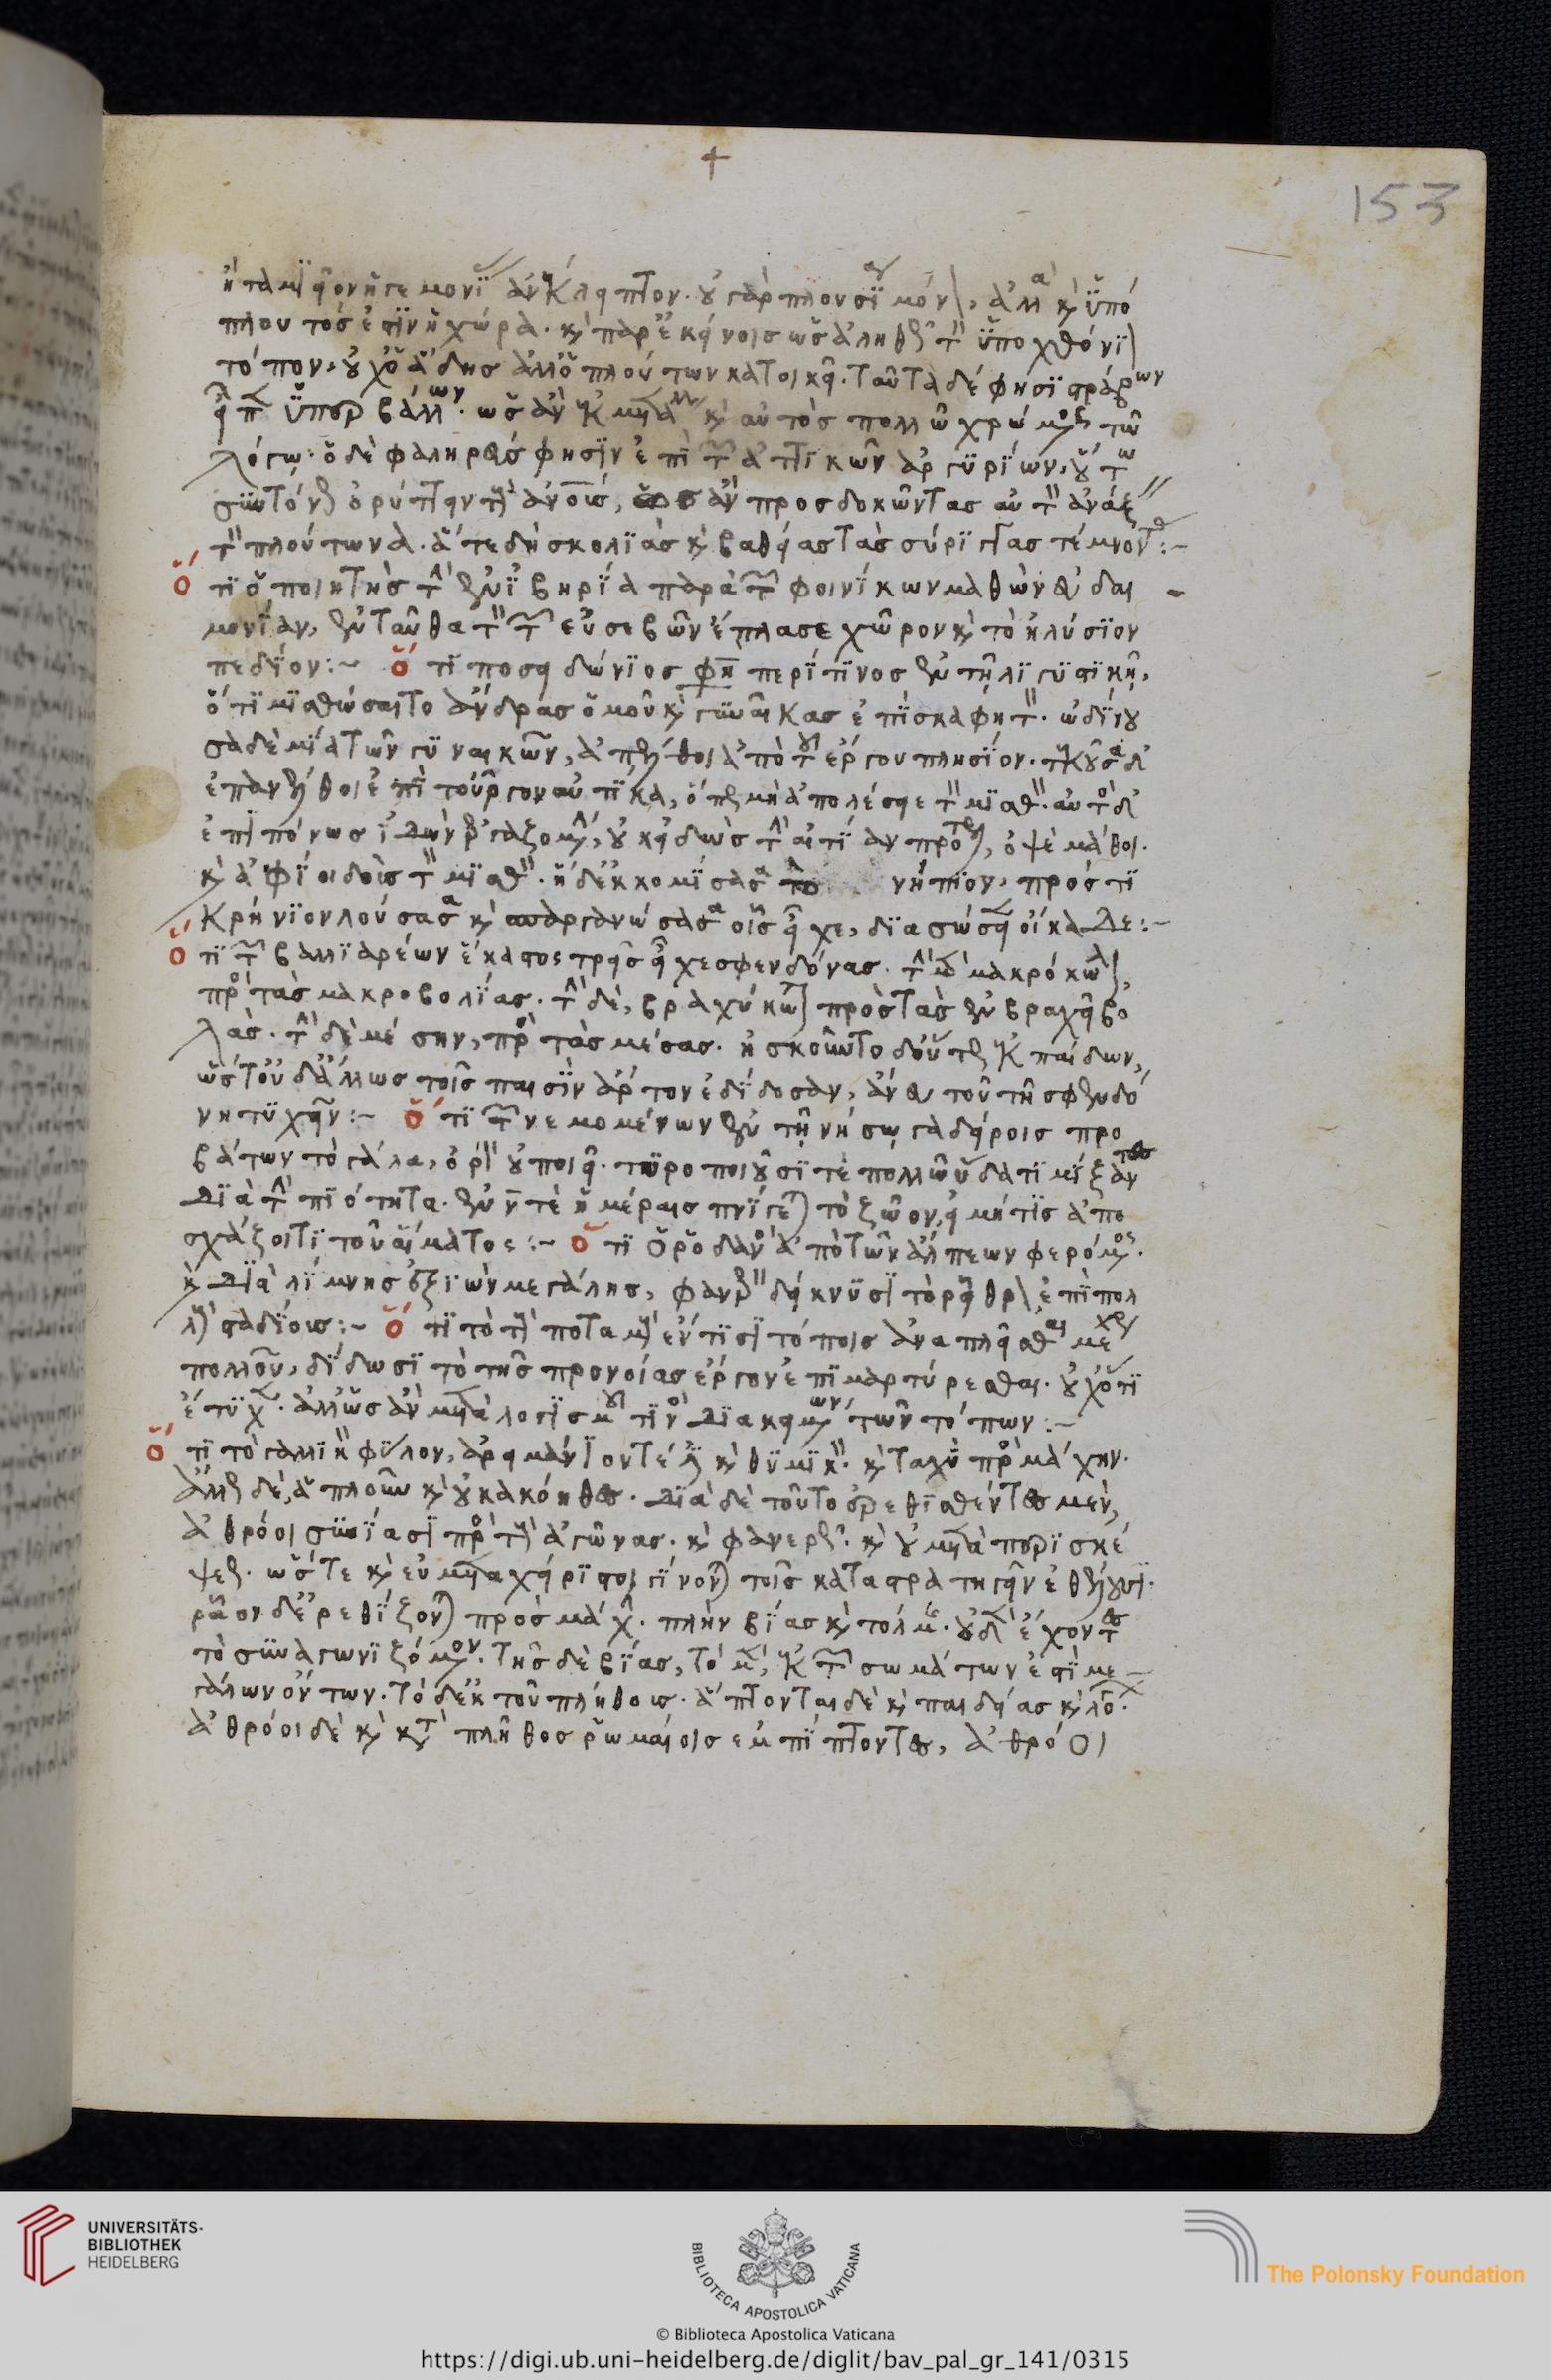 153
ἢ ταμιεῖον ἡγεμονίας ἀνέκλειπτον. οὐ γὰρ πλουσία μόνον, ἀλλὰ καὶ ὑπό
πλουτός ἐστιν ἡ χώρα. καὶ παρ' ἐκείνοις ὡς ἀληθῶς τὸν ὑποχθόνιον
τόπον, οὐχ ὁ ἅδης ἀλλ' ὁ πλούτων κατοικεῖ. ταῦτα δέ φησι περὶ
ὑπερβάλλων. ὡς ἂν ἐκ μετάλλου καὶ αὐτὸς πολλῷ χρώμενος τῷ
λόγῳ. ὁ δὲ φαληρεύς φησιν ἐπὶ τῶν ἀττικῶν ἀργυρίων, οὕτω
συντόνως ὀρύττειν τοὺς ἀνους, ὡς ἂν προσδοκῶντας αὐτὸν ἀνάξειν
τὸν πλούτωνα. ἅτε δὴ σκολιὰς καὶ βαθείας τὰς σύριγγας τέμνοντας:~
ὅτι ὁ ποιητὴς τὴν ἐν ἰβηρία παρὰ τῶν φοινίκων μαθὼν εὐδαι
μονίαν, ἐνταῦθα τὸν τῶν εὐσεβῶν ἔπλασε χῶρον καὶ τὸ ἠλύσιον
πεδίον:~ ὅτι ποσειδώνιος φη περί τινος ἐν τῇ λιγυστικῇ,
ὅτι μισθώσαιτο ἄνδρας ὁμοῦ καὶ γυναῖκας ἐπὶ σκαφητόν. ὠδίνου
σα δὲ μία τῶν γυναικῶν, ἀπέλθοι ἀπὸ τοῦ ἔργου πλησίον. τεκοῦσα δ'
ἐπανέλθοι ἐπὶ τοὖργον αὐτίκα, ὅπως μὴ ἀπολέσειε τὸν μισθόν. αὐτὸς δ'
ἐπιπόνως ἰδὼν ἐργαζομένην, οὐκ εἰδὼς τὴν αἰτίαν πρότερον, ὀψὲ μάθοι.
καὶ ἀφίοι δοὺς τὸν μισθόν. ἡ δ' ἐκκομίσασα τὸ νήπιον, πρός τι
κρήνιον λούσασα καὶ σπαργανώσασα οἷς εἶχε, διασώσειεν οἴκαδε:~
ὅτι τῶν βαλλιαρέων ἕκαστος τρεῖς εἶχε σφενδόνας. τὴν μὲν μακρόκωλον,
πρὸς τὰς μακροβολίας. τὴν δὲ, βραχύκωλον πρὸς τὰς ἐν βραχεῖ βο
λάς. τὴν δὲ μέσην, πρὸς τὰς μέσας. ἠσκοῦντο δ' οὕτως ἐκ παίδων,
ὥστ' οὐδ' ἄλλως τοῖς παισὶν ἄρτον ἐδίδοσαν, ἄνευ τοῦ τῇ σφενδό
νῃ τυχεῖν:~ ὅτι τῶν νεμομένων ἐν τῇ νήσῳ γαδείροις προ
βάτων τὸ γάλα, ὀρὸν οὐ ποιεῖ. τυροποιοῦσί τε πολλῷ ὕδατι μίξαντες
διὰ τὴν πιότητα. ἐν ν τε ἡμέραις πνίγεται τὸ ζῶον, εἰ μήτις ἀπο
σχάζοι τι τοῦ αἵματος:~ ὅτι ὁ ῥοδανὸς ἀπὸ τῶν ἄλπεων φερόμενος.
καὶ διὰ λίμνης ἐξιὼν μεγάλης, φανερὸν δείκνυσι τὸ ῥεῖθρον ἐπὶ πολ
λοὺς σταδίους:~ ὅτι τὸ τοὺς ποταμοὺς ἔν τισι τόποις ἀναπλεῖσθαι μέχρι
πολλοῦ, δίδωσι τὸ τῆς προνοίας ἔργον ἐπιμαρτύρεσθαι. οὐχ ὅτι
ἔτυχεν. ἀλλ' ὡς ἂν μετὰ λογισμοῦ τινὸς διακειμένων τῶν τόπων:~
ὅτι τὸ γαλλικὸν φῦλον, ἀρειμάνιόν τέ ἐστι καὶ θυμικόν. καὶ ταχὺ πρὸς μάχην.
ἄλλως δὲ, ἁπλοῦν καὶ οὐ κακόηθες. διὰ δὲ τοῦτο ἐρεθισθέντες μὲν,
ἀθρόοι συνίασι πρὸς τοὺς ἀγῶνας. καὶ φανερῶς. καὶ οὐ μετὰ περισκέ
ψεως. ὥστε καὶ εὐμεταχείριστοι γίνονται τοῖς καταστρατηγεῖν ἐθέλουσι.
ρᾶον δ' ἐρεθίζονται πρὸς μάχην. πλὴν βίας καὶ τόλμης. οὐδὲν ἔχοντες
τὸ συναγωνιζόμενον. τῆς δὲ βίας, τὸ μὲν, ἐκ τῶν σωμάτων ἐστὶ με
γάλων ὄντων. τὸ δ' ἐκ τοῦ πλήθους. ἅπτονται δὲ καὶ παιδείας καὶ λόγων.
ἀθρόοι δὲ καὶ κατὰ πλῆθος ῥωμαίοις ἐμπίπτοντες, ἀθρόοι
UNIVERSITÄTS-
BIBLIOTHEK
HEIDELBERG
BIBLIOTECA APOSTOLICA VATICANA
The Polonsky Foundation
© Biblioteca Apostolica Vaticana
https://digi.ub.uni-heidelberg.de/diglit/bav_pal_gr_141/0315